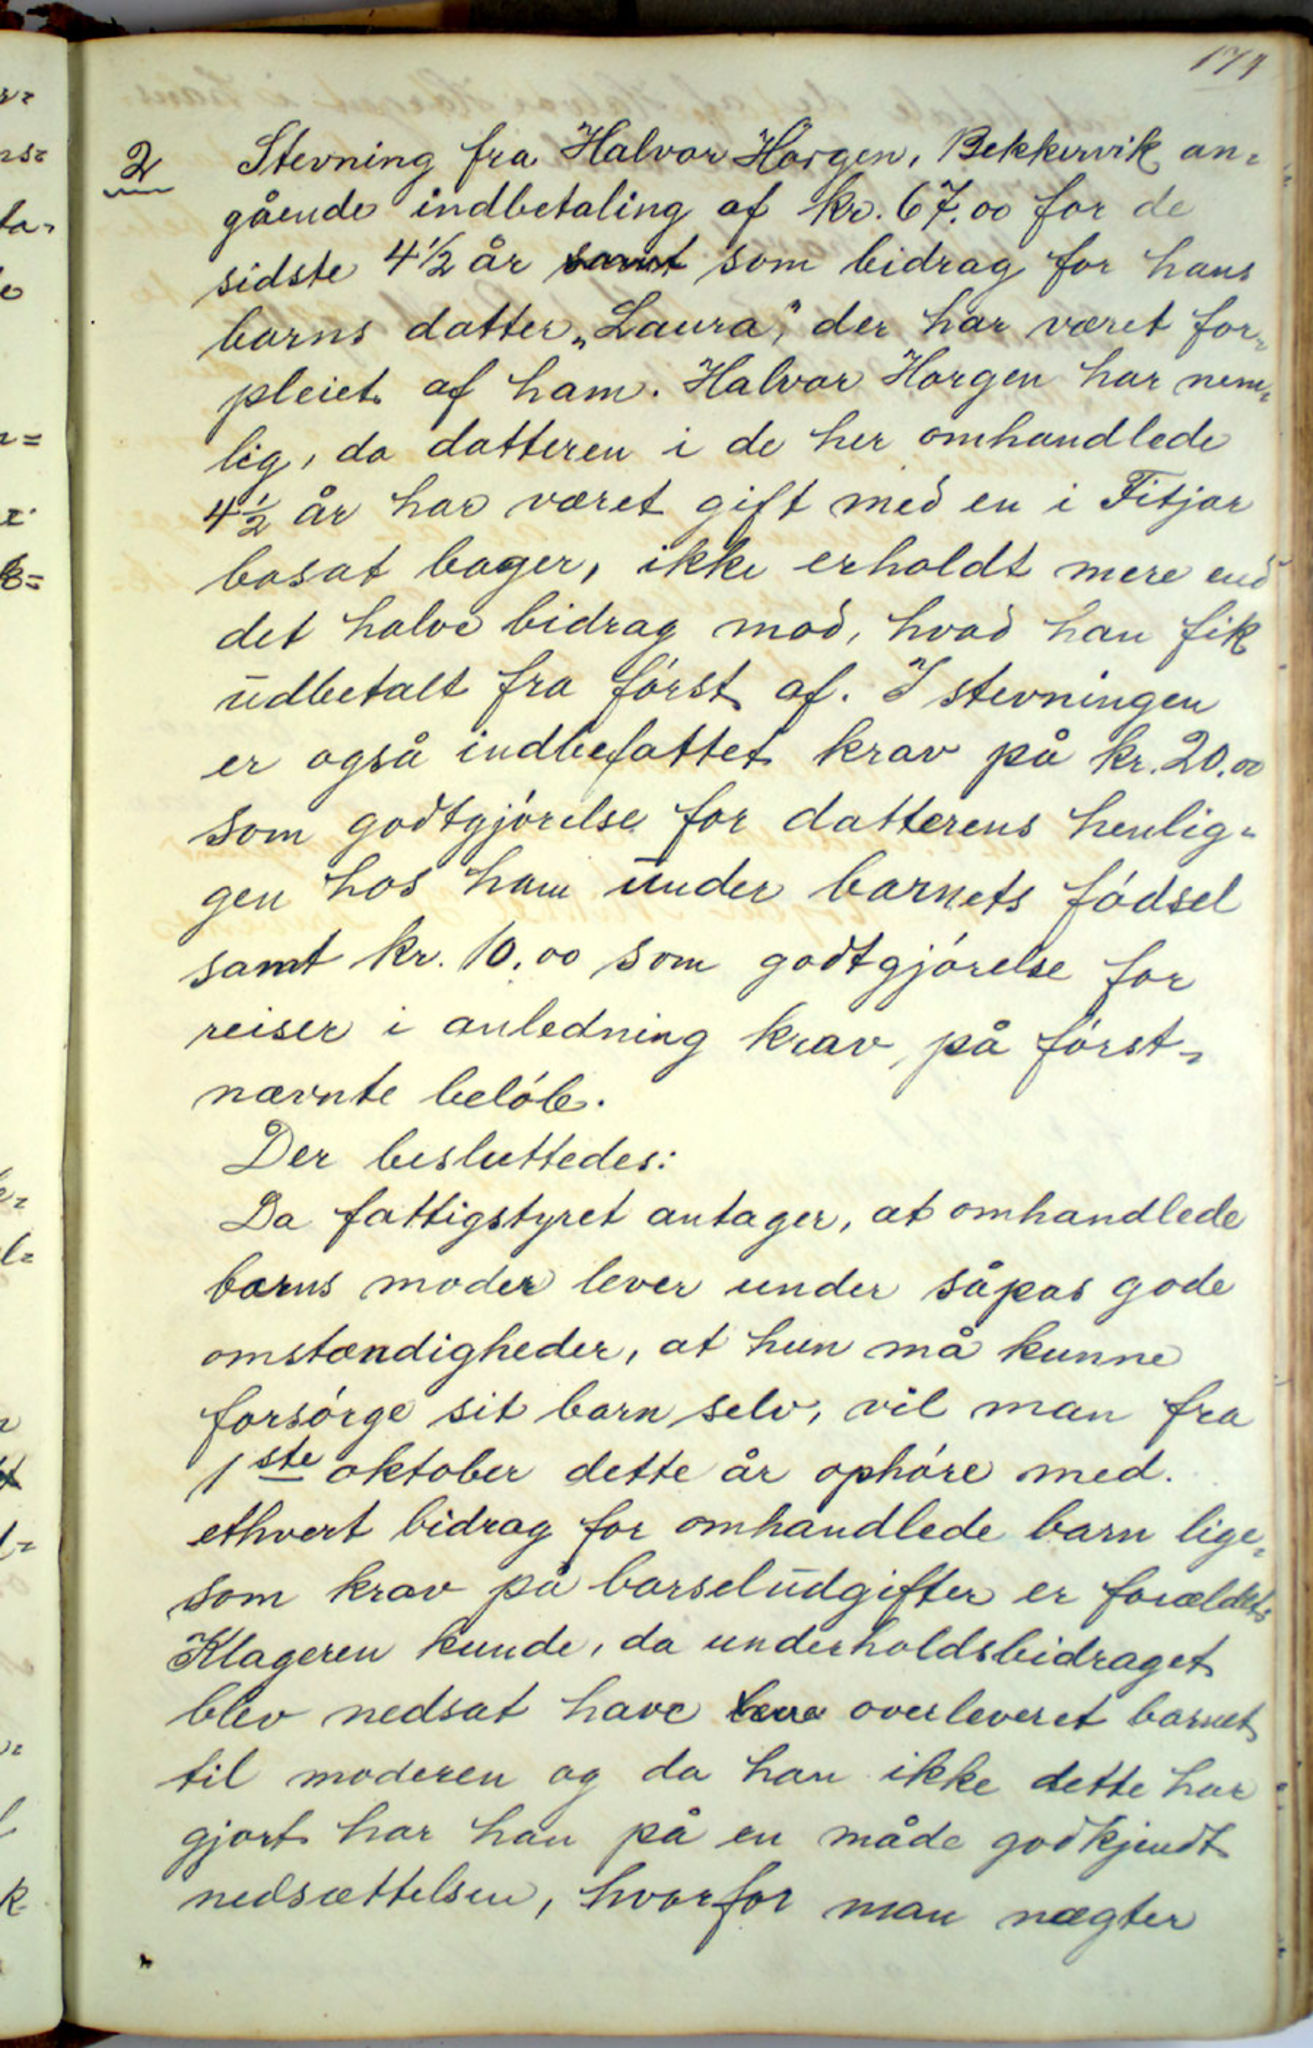 2 Stevning fra Halvor Horgen, Bekkervik an-
gående indbetaling af kr. 67.00 for de
sidste 4 1/2 år som bidrag for hans
barns datter „Laura", der har været for-
pleiet af ham. Halvor Horgen har nem-
lig, da datteren i de her omhandlede
4 1/2 år har været gift med en i Fitjar
bosat bager, ikke erholdt mere end
det halve bidrag mod, hvad han fik
udbetalt fra först af. I stevningen
er også indbefattet krav på kr. 20.00
som godtgjörelse for datterens henlig-
gen hos ham under barnets födsel
samt kr. 10.00 som godtgjörelse for
reiser i anledning krav på först-
nævnte belöb.
Der besluttedes:
Da fattigstyret antager, at omhandlede
barns moder lever under såpas gode
omstændigheder, at hun må kunne
forsörge sit barn selv, vil man fra
1ste oktober dette år ophöre med
ethvert bidrag for omhandlede barn lige-
som krav på barseludgifter er forældet.
Klageren kunde, da underholdsbidraget
blev nedsat have overleveret barnet
til moderen og da han ikke dette har
gjort har han på en måde godkjendt
nedsættelsen, hvorfor man nægter